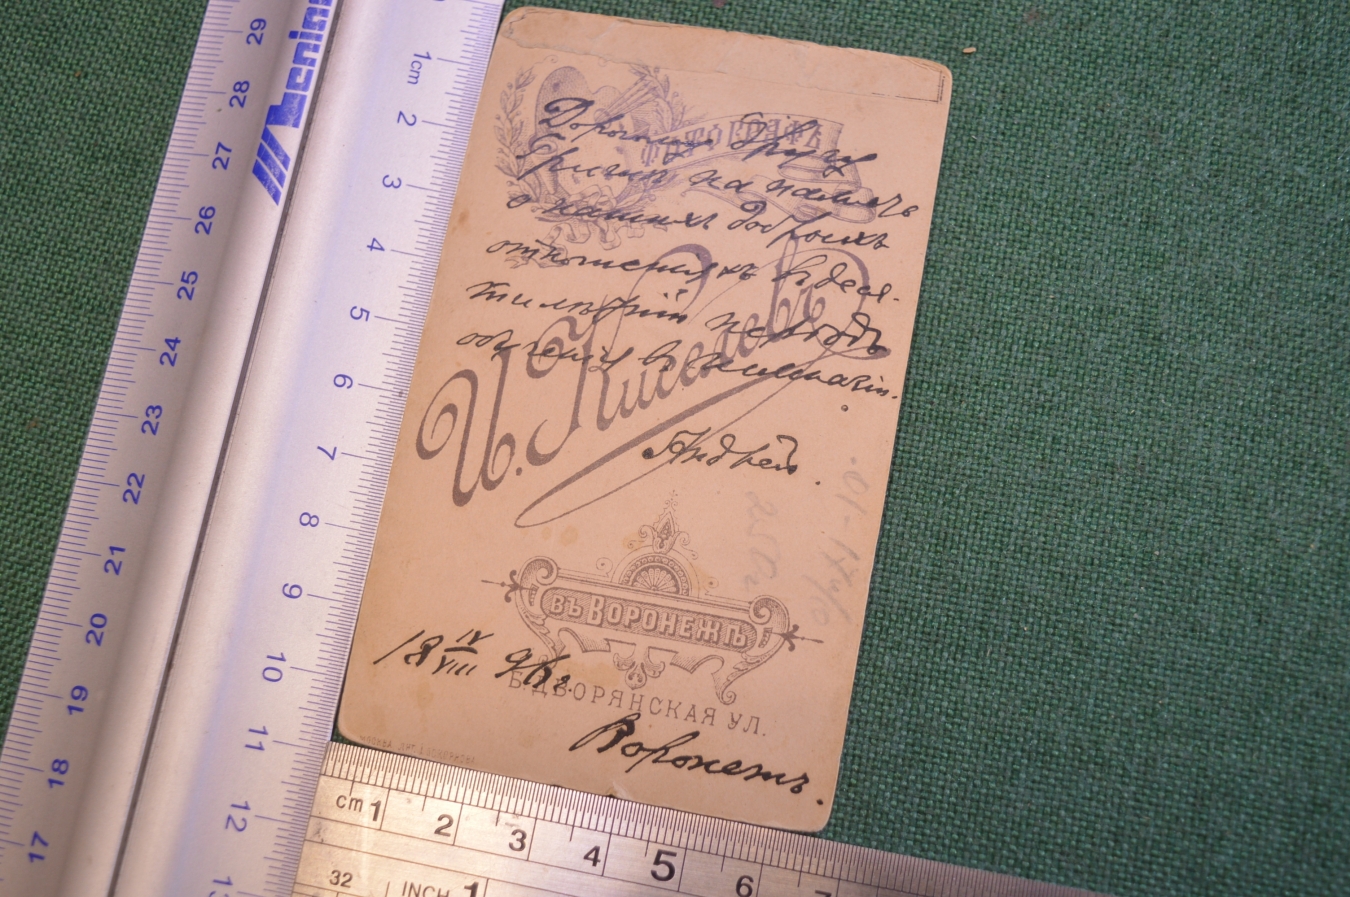 ФОТОГРАФЪ
Дорогому Другу
Грише на память
о нашихъ добрыхъ
отношенияхъ в
обученiя в гимназiи.
И. Киселевъ
Андрей.
въ ВОРОНЕЖѢ
18 IV/VIII 96 г.
Б. ДВОРЯНСКАЯ УЛ.
Воронежъ.
1cm 2 3 4 5 6 7 8 9 10 11 12 13
29 28 27 26 25 24 23 22 21 20 19 18 17
cm 1 2 3 4 5 6 7
32 INCH 1